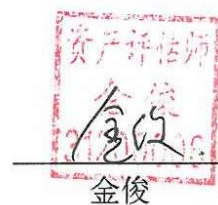 资产评估师
金俊
金俊
金俊